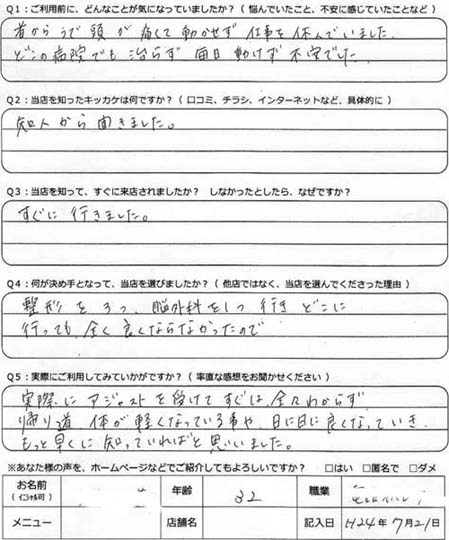 Q1：ご利用前に、どんなことが気になっていましたか？（ 悩んでいたこと、不安に感じていたことなど ）
首から うで 頭 が 痛くて 動かせず 仕事を 休んでいました。
どこの病院でも 治らず 毎日 動けず 不安でした。
Q2：当店を知ったキッカケは何ですか？（ 口コミ、チラシ、インターネットなど、具体的に ）
知人 から 聞きました。
Q3：当店を知って、すぐに来店されましたか？　しなかったとしたら、なぜですか？
すぐに 行きました。
Q4：何が決め手となって、当店を選びましたか？（ 他店ではなく、当店を選んでくださった理由 ）
整形 を 3つ、脳外科を 1つ 行き どこに
行っても 全く 良くならなかったので
Q5：実際にご利用してみていかがですか？（ 率直な感想をお聞かせください ）
実際に アジャストを 受けて すぐは、全々わからず
帰り道 体が 軽くなっている事や、日に日に 良くなっていき、
もっと 早くに 知っていればと 思いました。
※あなた様の声を、ホームページなどでご紹介してもよろしいですか？　□はい　□匿名で　□ダメ
お名前　年齢　32　職業
（イニシャル可）
メニュー　店舗名　記入日　H24年 7月21日